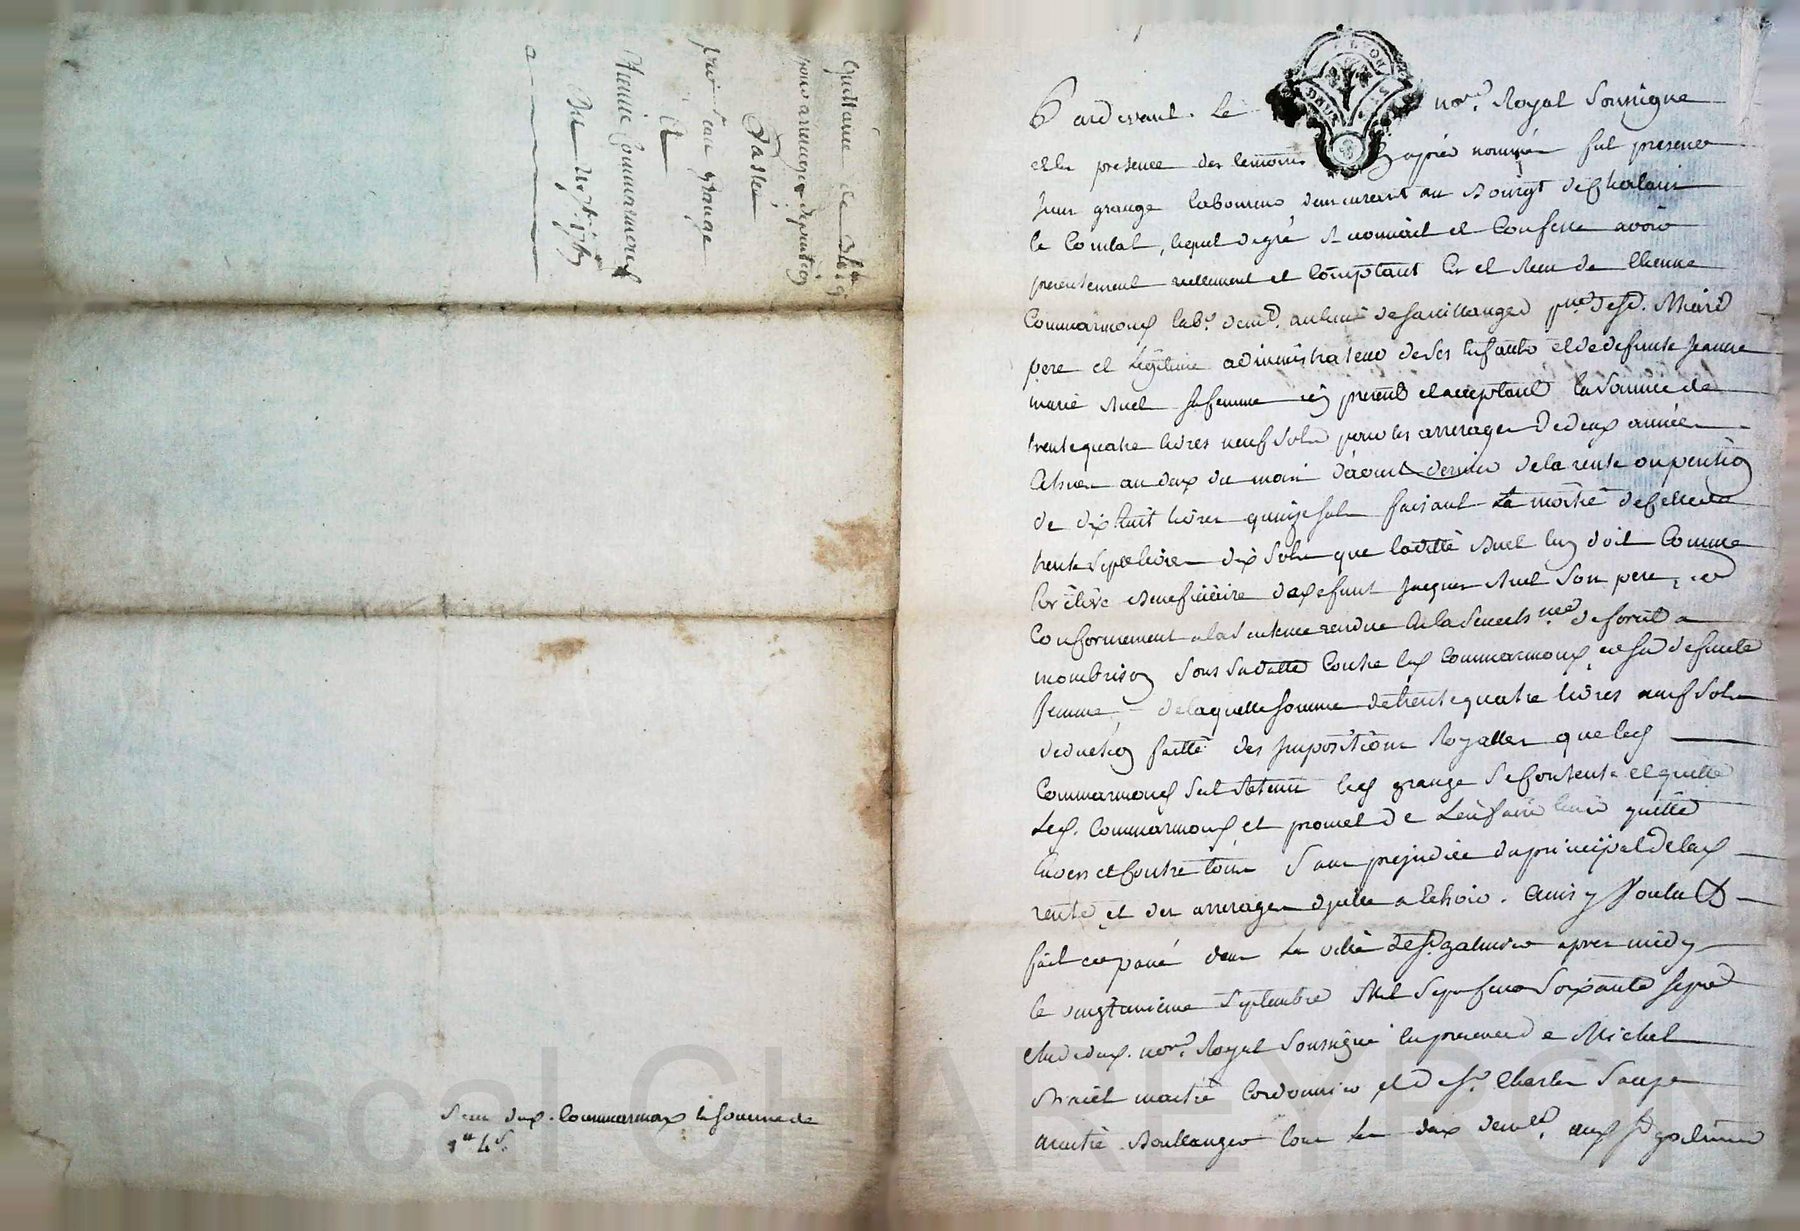 Quittance de 34# 9s
pour arrerages de pention
Passé
par Jean grange
A
Etienne Commarmond
Du 21e 7bre 1767
Reçu dud. Commarmond la somme de
1# 4s.
Pardevant Le nore. Royal soussigné
et en presence des temoins cy après nommés fut present
Jean grange laboureur demeurant au Bourgt de Chalain
le Comtal, lequel de gré a reconnu et Confessé avoir
presentement reellement et Comptant eu et receu de Etienne
Commarmond labr. demt. au lieu de savillanges psse de st. Medard
pere et Legitime administrateur de ses Enfants et de defunte Jeanne
marie Ruel sa femme icy present et acceptant la somme de
trente quatre livres neuf sols pour les arrerages de deux années
Echues au dix du mois d'aoust dernier de la rente ou pention
de dix huit livres quinze sols faisant La moitié de celle de
trente sept livres dix sols que laditte Ruel luy doit Comme
heritiere Beneficiaire de defunt Jacques Ruel son pere, et
Conformement a la sentence rendue en la senechssée de forest a
montbrison sous sa datte Contre led Commarmond, et sa defunte
femme, de laquelle somme de trente quatre livres neuf sols
deduction faitte des impositions Royalles que led
Commarmond a Retenu led grange se Contente et quitte
Led. Commarmond et promet de L'en faire tenir quitte
Envers et Contre tous sans prejudice du principal de lad
rente et des arrerages depuis a Echoir. Ainsy Voulu &
fait et passé dans La ville de st. galmier apres midy
le vingt unieme septembre Mil sept Cent soixante sept
nore. Royal soussigné En presence de Michel
maitre Cordonnier et de sr. Charles
maitre Boullanger tous Les deux demts. aud st galmier
Pascal CHAREYRON